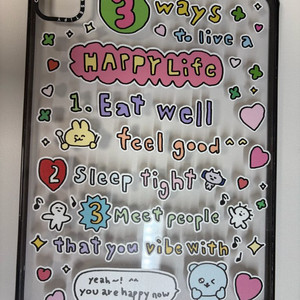 3 ways
to live a
HAPPY Life
1. Eat well
feel good ^^
2 Sleep tight
3 Meet people
that you vibe with
yeah~! ^^
you are happy now